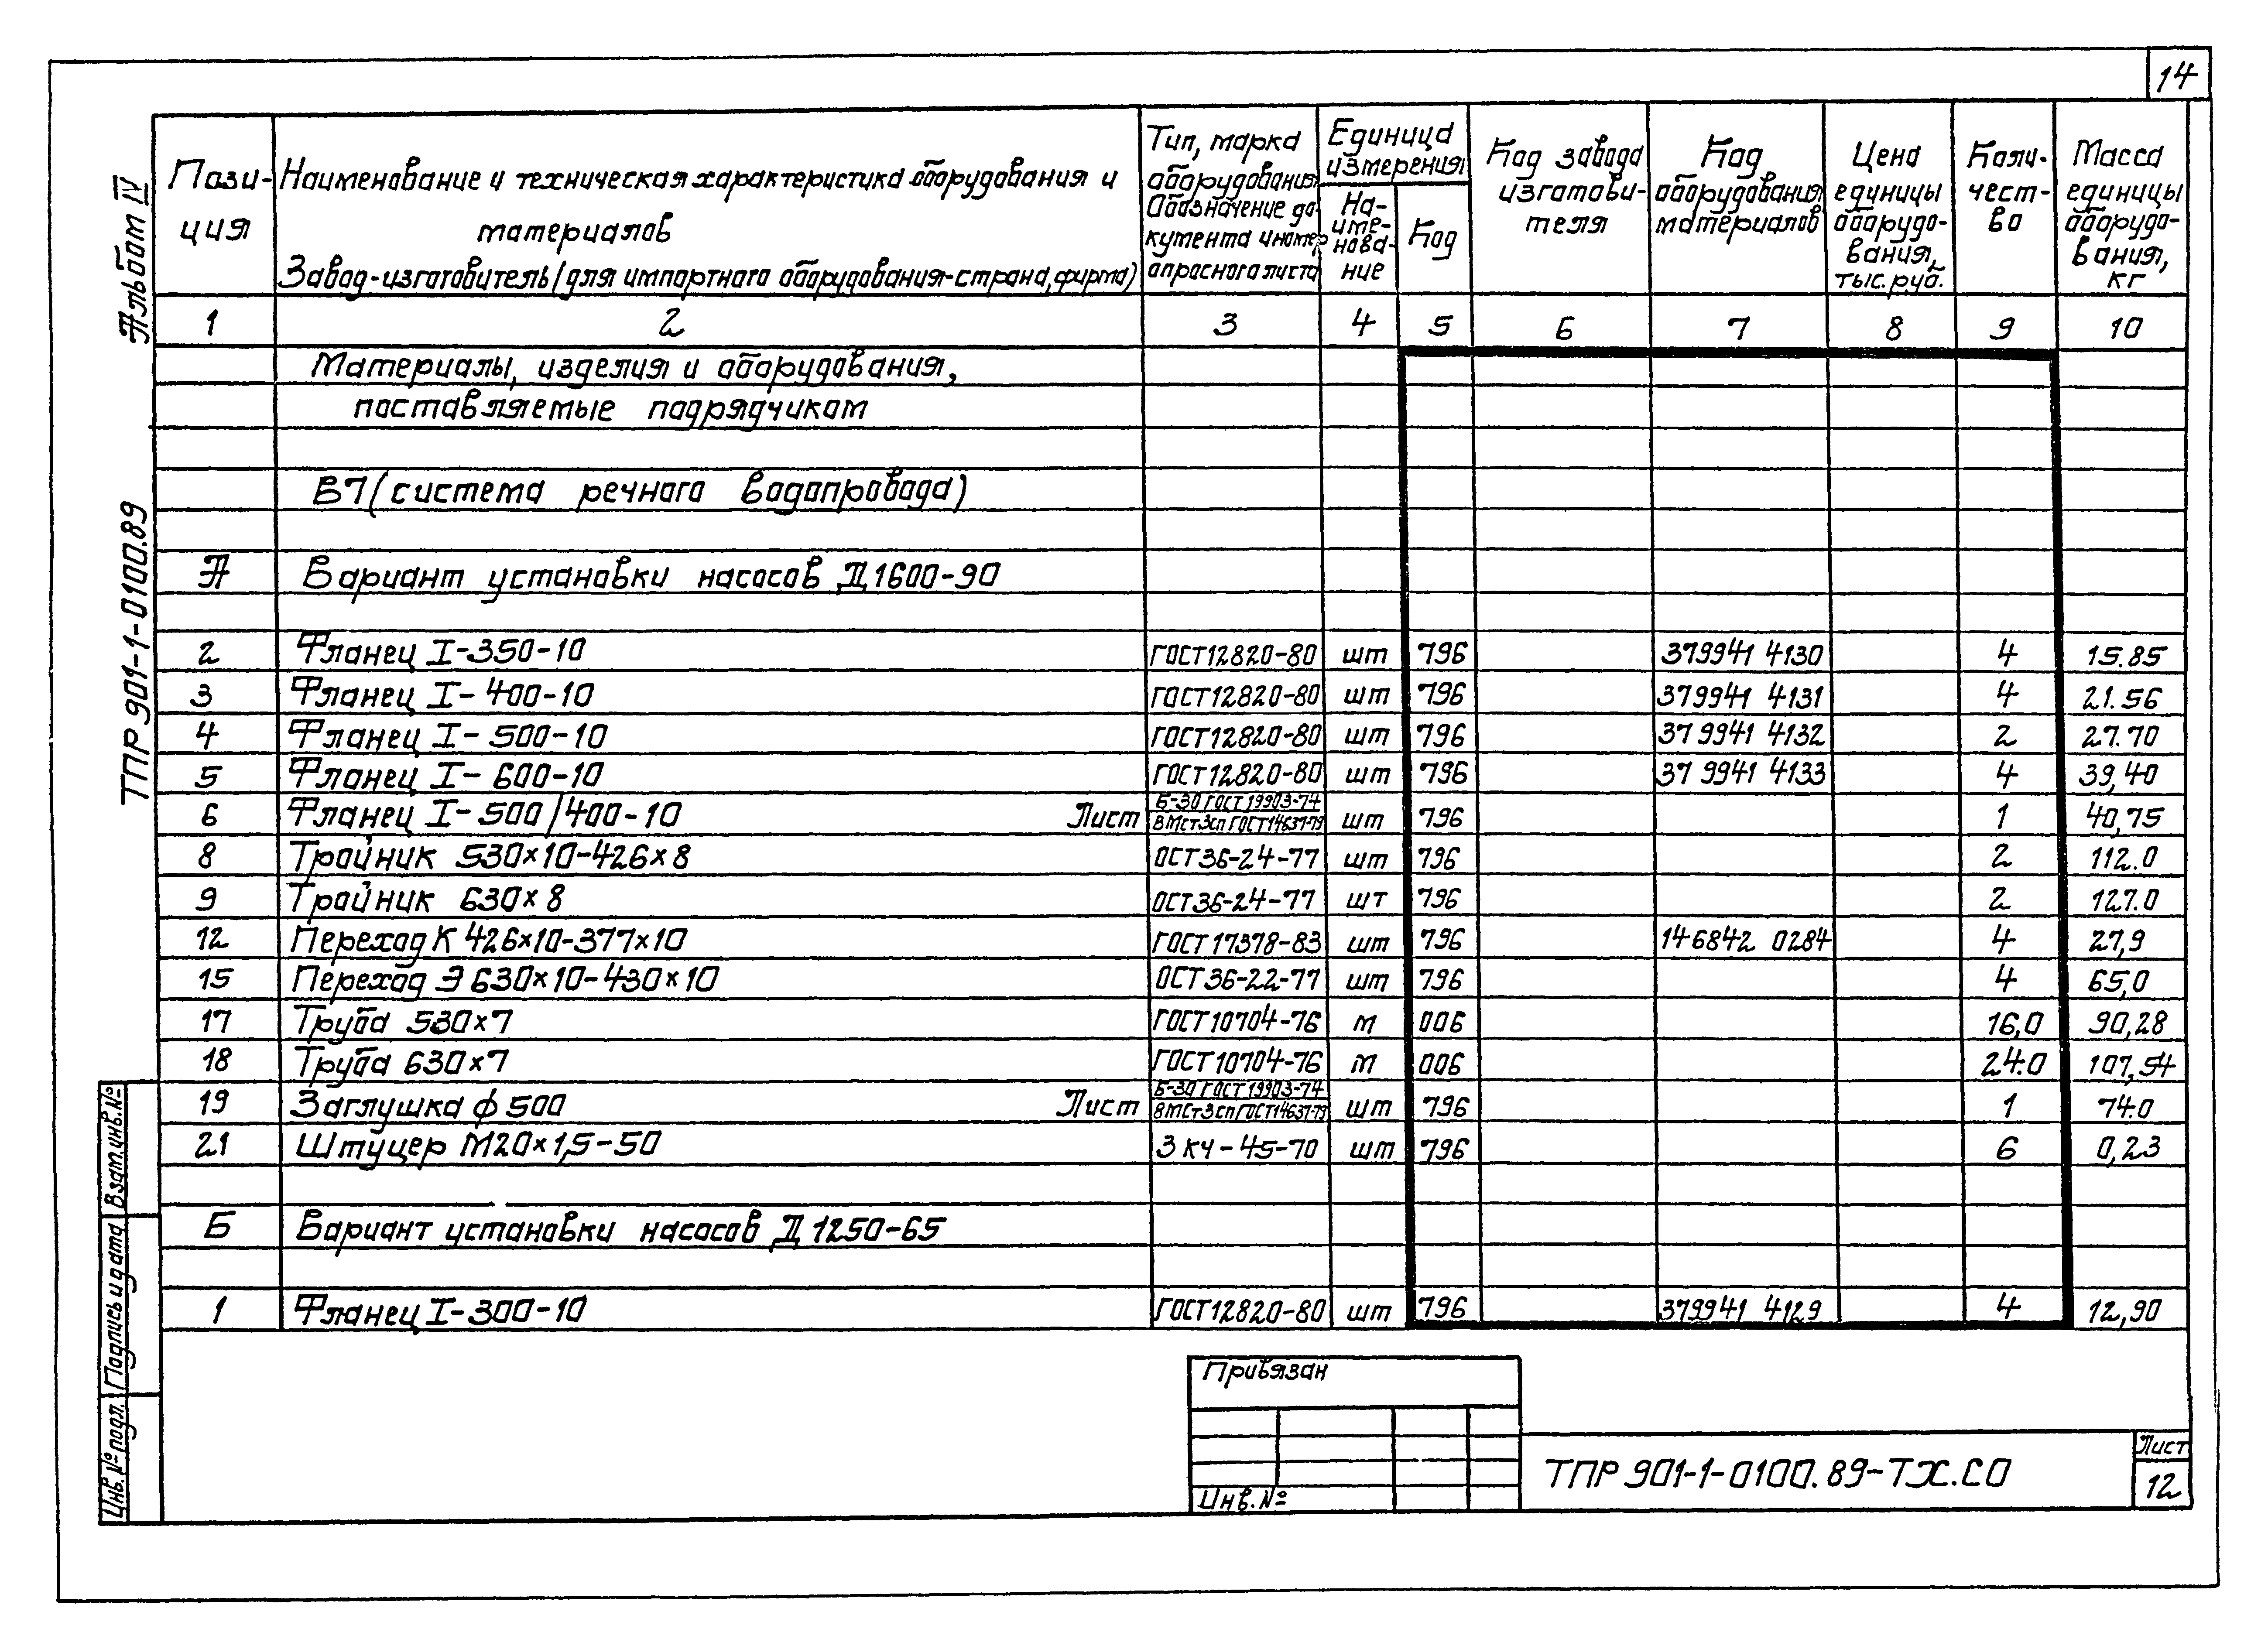 14
Альбом IV
ТПР 901-1-0100.89
Пози- Наименование и техническая характеристика оборудования и
ция материалов
Завод-изготовитель (для импортного оборудования-страна, фирма)
Тип, марка
оборудования
Обозначение до-
кумента и номер
опросного листа
Единица
измерения
На-
име-
нова-
ние
Код
Код завода
изготови-
теля
Код
оборудования
материалов
Цена
единицы
оборудо-
вания,
тыс. руб.
Коли-
чест-
во
Масса
единицы
оборудо-
вания,
кг
1 2 3 4 5 6 7 8 9 10
Материалы, изделия и оборудования,
поставляемые подрядчиком
В7 (система речного водопровода)
А Вариант установки насосов Д1600-90
2 Фланец I-350-10 ГОСТ12820-80 шт 796 379941 4130 4 15.85
3 Фланец I-400-10 ГОСТ12820-80 шт 796 379941 4131 4 21.56
4 Фланец I-500-10 ГОСТ12820-80 шт 796 37 9941 4132 2 27.70
5 Фланец I-600-10 ГОСТ12820-80 шт 796 37 9941 4133 4 39,40
6 Фланец I-500/400-10 Лист Б-30 ГОСТ 19903-74 шт 796 1 40,75
ВМст3сп ГОСТ14637-79
8 Тройник 530×10-426×8 ОСТ36-24-77 шт 796 2 112.0
9 Тройник 630×8 ОСТ36-24-77 шт 796 2 127.0
12 Переход К 426×10-377×10 ГОСТ17378-83 шт 796 146842 0284 4 27,9
15 Переход Э 630×10-430×10 ОСТ36-22-77 шт 796 4 65,0
17 Труба 530×7 ГОСТ10704-76 м 006 16,0 90,28
18 Труба 630×7 ГОСТ10704-76 м 006 24.0 107,54
19 Заглушка ф500 Лист Б-30 ГОСТ19903-74 шт 796 1 74.0
ВМСт3сп ГОСТ14637-79
21 Штуцер М20×1,5-50 3 КЧ-45-70 шт 796 6 0,23
Б Вариант установки насосов Д 1250-65
1 Фланец I-300-10 ГОСТ12820-80 шт 796 379941 4129 4 12,90
Взам.инв.№
Подпись и дата
Инв.№ подл.
Привязан
Инв.№
ТПР 901-1-0100.89-ТХ.СО
Лист
12